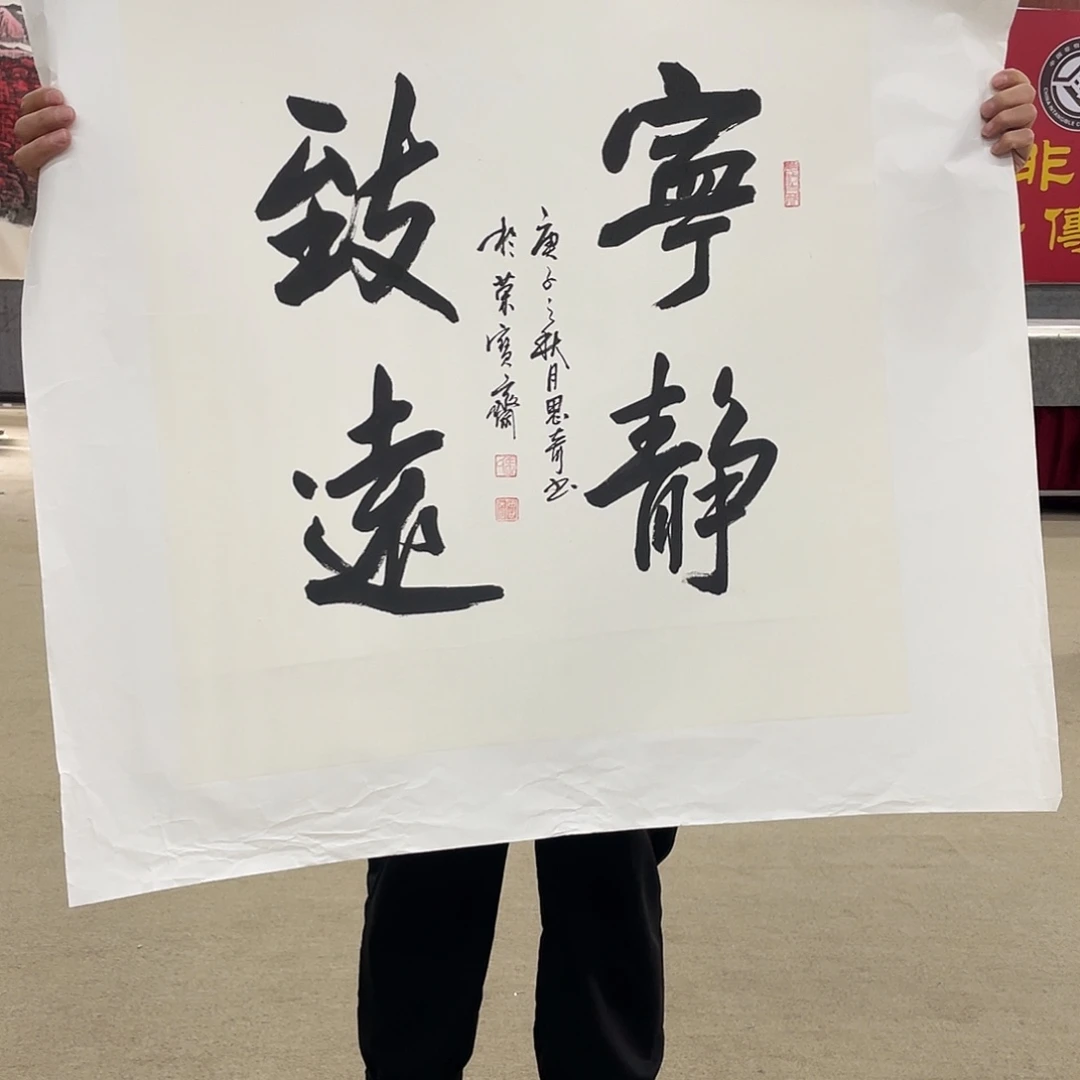 寧靜
致遠
庚子之秋月思奇书
於荣寶齋
非
傳